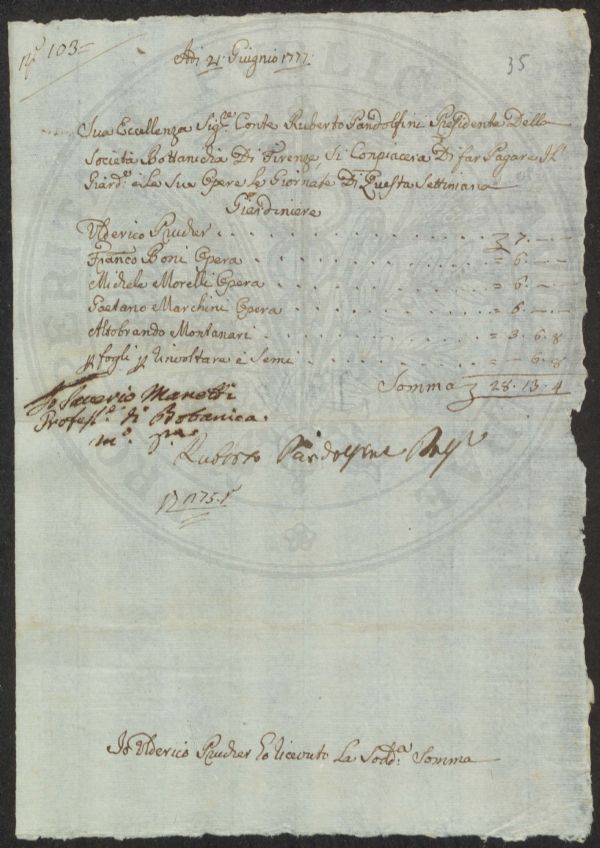 N.º 103=
35
Adi 21 Giugnio 1777
Sua Eccellenza Sig.re Conte Ruberto Pandolfini Presidente Della
Società Bottanicha Di Firenze, Si Conpiacera Di far Pagare Il
Giard.e e La Sua Opere Le Giornate Di Questa Settimana
Giardiniere
Ulderico Prucher . . . . . . . . . . 7. — . —
Franco Boni Opera . . . . . . . . . = 6. — . —
Michele Morelli Opera . . . . . . . . = 6. — . —
Gaetano Marchini Opera . . . . . . . = 5. — . —
Altobrando Montanari . . . . . . . . = 3. 6. 8
p fogli p Involtare i Semi . . . . . . = — 6. 8
Somma 28. 13. 4
Io Saverio Manetti
Profess.e di Botanica
m.o p.a
Ruberto Pandolfini Pres.e
1775.
Io Ulderico Prucher ho Riceuto La Sodd.a Somma